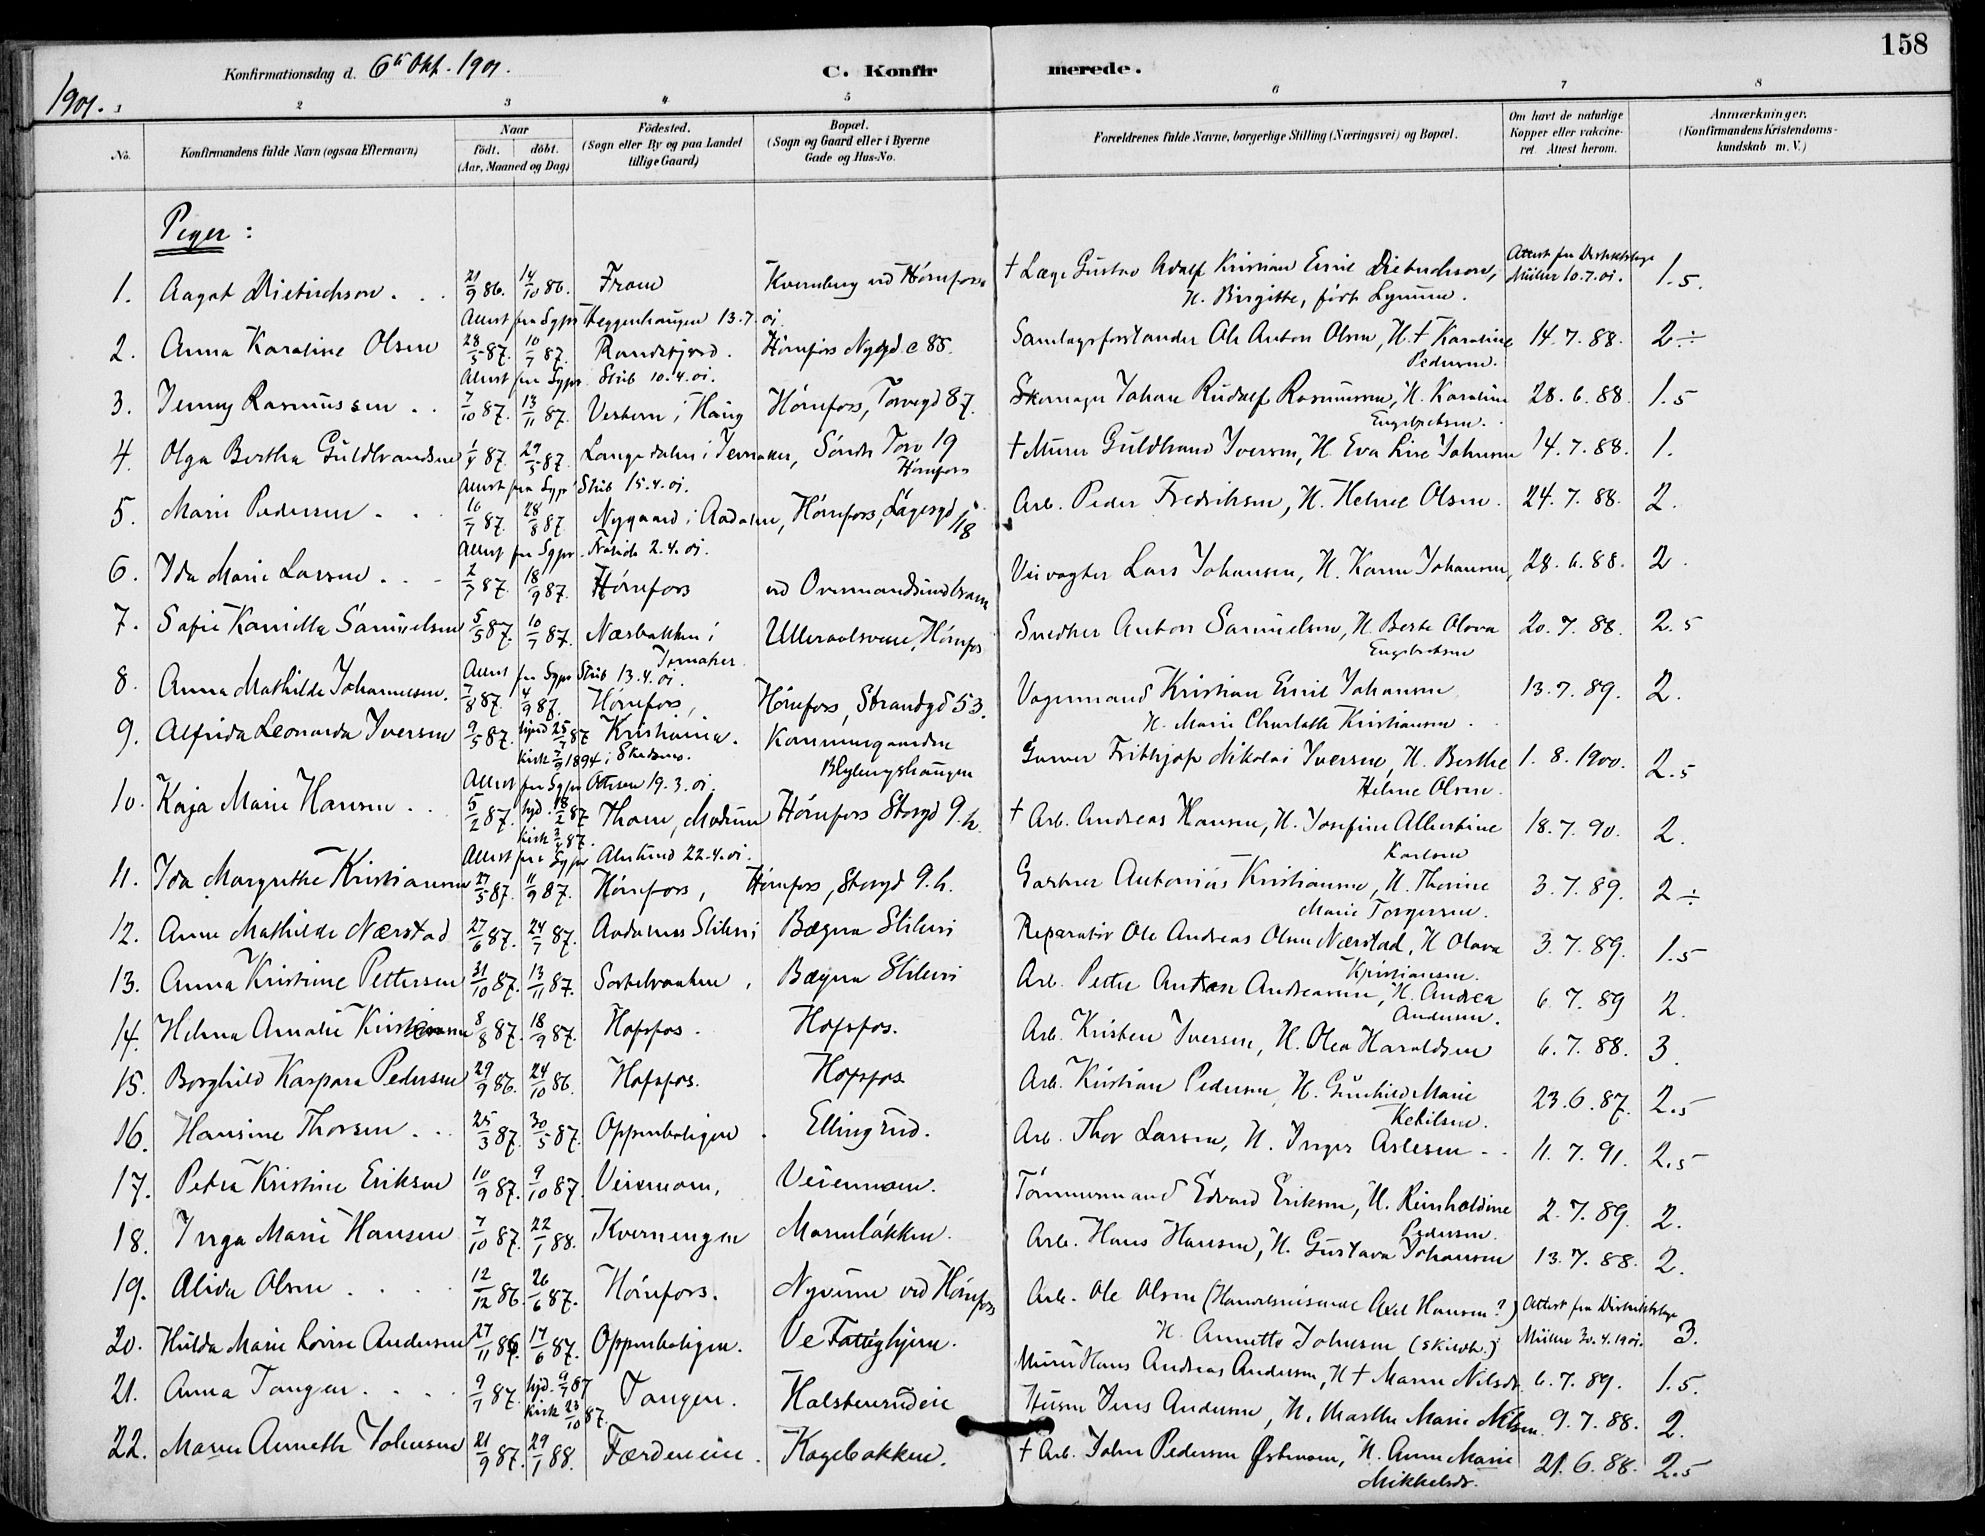 158
Konfirmationsdag d. 6te Okt. 1901. C. Konfirmerede.
1901.
1 2 3 4 5 6 7 8
No. Konfirmandens fulde Navn (ogsaa Efternavn) Naar født. døbt. (Aar, Maaned og Dag) Fødested. (Sogn eller By og paa Landet tillige Gaard) Bopæl. (Sogn og Gaard eller i Byerne Gade og Hus-No. Forældrenes fulde Navne, borgerlige Stilling (Næringsvei) og Bopæl. Om havt de naturlige Kopper eller vakcineret. Attest herom. Anmærkninger. (Konfirmandens Kristendomskundskab m. V.)
Piger:
1. Aagot Dietrichson. 21/9 86. 14/10 86. Fron Kvernberg ved Hønefoss † Læge Gustav Adolf Kristian Emil Dietrichson, H. Birgitte, født Lynum. Attest fra Distriktslæge Müller 10.7.01. 1.5.
Attest fra Sgpr Heggenhaugen 13.7.01.
2. Anna Karoline Olsen 28/5 87. 10/7 87. Randsfjord. Hønefos Nygd c 88. Samlagsforstander Ole Anton Olsen, H. † Karoline Pedersen. 14.7.88. 2÷
Attest fra Sgpr. Stub 10.4.01.
3. Jenny Rasmussen . . 7/10 87. 13/11 87. Vestern i Haug Hønefoss, Torvegd 87. Skomager Johan Rudolf Rasmussen, H. Karoline Engebretsen. 28.6.88. 1.5
4. Olga Bertha Guldbrandsen 1/4 87. 29/5 87. Langedalen i Jevnaker, Søndr Torv 19 Hønefoss † Murer Guldbrand Iversen, H. Eva Lise Johnsen 14.7.88. 1.
Attest fra Sgpr Stub 15.4.01.
5. Marie Pedersen . . 16/7 87. 28/8 87. Nygaard i Aadalen, Hønefoss, Lagesgd 18 Arb. Peder Fredriksen, H. Helene Olsen. 24.7.88. 2.
Attest fra Sgpr. 2.4.01.
6. Ida Marie Larsen . . 2/7 87. 18/9 87. Hønefoss ved Overmandsindbraaten Veivogter Lars Johansen, H. Karen Johansen, 28.6.88. 2.
7. Sofie Kamilla Samuelsen 5/5 87. 10/7 87. Næsbakken i Jevnaker. Ulleraalsveie, Hønefos Snedker Anton Samuelsen, H. Berte Olava Engebretsen 20.7.88. 2.5
Attest fra Sgpr Stub 13.4.01.
8. Anna Mathilde Johannesen. 7/8 87. 4/9 87. Hønefoss, Hønefoss, Strandgd 53. Vognmand Kristian Emil Johansen H. Marie Charlotte Kristiansen. 13.7.89. 2.
9. Alfrida Leonarda Iversen 9/5 87. hjmd 25/7 87 Kristiania. Kirk 2/9 1894 i Skedsmo. Kommunegaarden Blybergshaugen Garver Frithjof Nikolai Iversen, H. Berthe Helene Olsen. 1.8.1900. 2.5
Attest fra Sgpr Ottesen 19.3.01.
10. Kaja Marie Hansen . . 5/2 87. hjd. 18/2 87 Kirk 87. Thoen, Modum Hønefoss Storgd 9.h. † Arb. Andreas Hansen, H. Josefine Albertine Karlsen 18.7.90. 2.
Attest fra Sgpr Alstrud 22.4.01.
11. Ida Margrethe Kristiansen 27/5 87. 11/9 87. Hønefoss, Hønefoss, Storgd 9.h. Gartner Antonius Kristiansen, H. Thorine Marie Torgersen. 3.7.89. 2÷
12. Anne Mathilde Nærstad 27/6 87. 24/7 87. Aadalens Sliberi Bægna Sliberi Reparatør Ole Andreas Olsen Nærstad, H. Olava Kristiansen. 3.7.89. 1.5
13. Anna Kristine Pettersen 31/10 87. 13/11 87. Sortebraaten, Bægna Sliberi Arb. Petter Anton Andreasen, H. Andrea Andersen. 6.7.89 2.
14. Helma Amalie Kristiansen 8/8 87. 18/9 87. Hofsfos. Hofsfos. Arb. Kristen Iversen, H. Olea Haraldsen 6.7.88. 3.
15. Borghild Kaspara Pedersen 29/9 86. 24/10 86. Hofsfos. Hofsfos Arb. Kristian Pedersen, H. Gunhild Marie Ketilsen. 23.6.87. 2.5
16. Hansine Thorsen . . . 25/3 87. 30/5 87. Oppenboligen. Ellingrud. Arb. Thor Larsen, H. Inger Aslesen . . 11.7.91. 2.5
17. Petra Kristine Eriksen 10/9 87. 9/10 87. Veienmoen, Veienmoen. Tømmermand Edvard Eriksen, H. Reinholdine Pedersen. 2.7.89. 2.
18. Inga Marie Hansen 7/10 87. 22/1 88. Kverningen Marieløkken. Arb. Hans Hansen, H. Gustava Johansen 13.7.88. 2.
19. Alida Olsen . . . . 12/12 86. 26/6 87. Hønefoss. Nyveien ved Hønefos Arb. Ole Olsen (Handelsreisende Axel Hansen?) H. Annette Johnsen (skilt.) Attest fra Distriktslæge Müller 30.4.1901. 3.
20. Hilda Marie Lovise Andersen 27/11 86. 17/6 87. Oppenboligen. Ve Fattighjem. Murer Hans Andreas Andersen, H † Maren Nilsdr. 6.7.89. 1.5.
21. Anna Tangen . . . . 9/7 87. hjd. 9/7 87 Kirk 23/10 87. Tangen. Halstenrudeie Husm Jens Andersen, H. Marthe Marie Nilsen. 9.7.88. 2.
22. Maren Annette Johnsen 21/9 87. 29/1 88. Færdeneie. Kagebakken. † Arb. John Pedersen Østmoen, H. Anne Marie Mikkelsdr. 21.6.88. 2.5